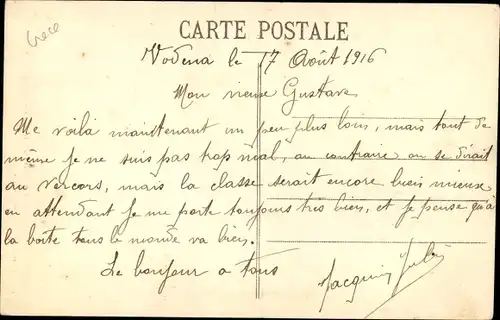 Grece
CARTE POSTALE
Vodena le 17 Août 1916
Mon vieux Gustave
Me voilà maintenant un peu plus loin, mais tout de
même je ne suis pas trop mal, au contraire on se dirait
au Vercors, mais la classe serait encore bien mieux
en attendant je me porte toujours très bien, et je pense qu'à
la boîte tous le monde va bien.
Le bonjour a tous
Jacquin Jules